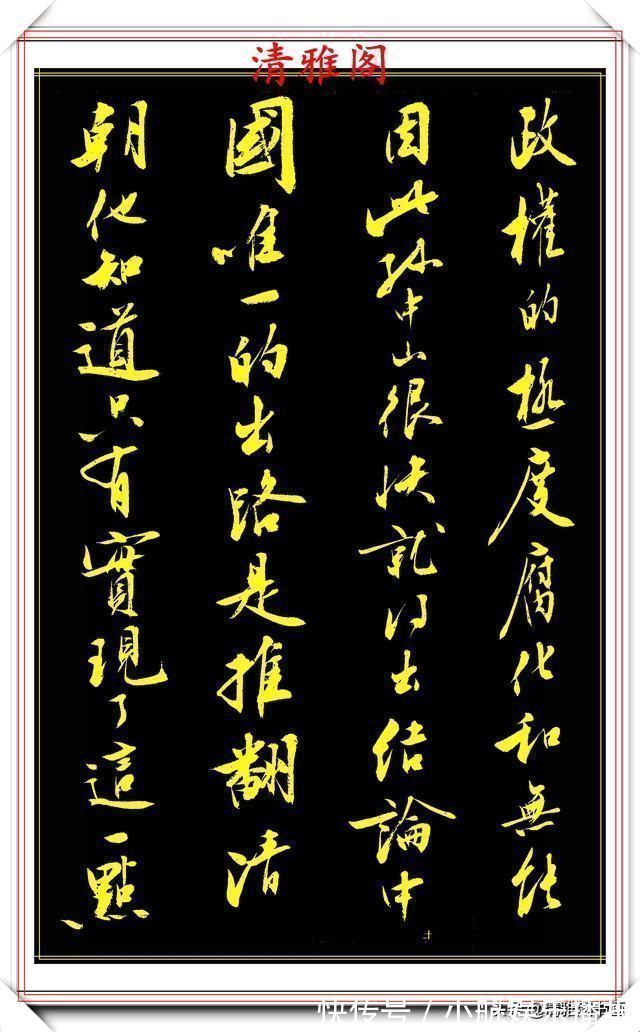 清雅阁
政權的極度腐化和無能
因此孫中山很快就得出結論中
國唯一的出路是推翻清
朝他知道只有實現了這一點
快传号／小航娱乐播